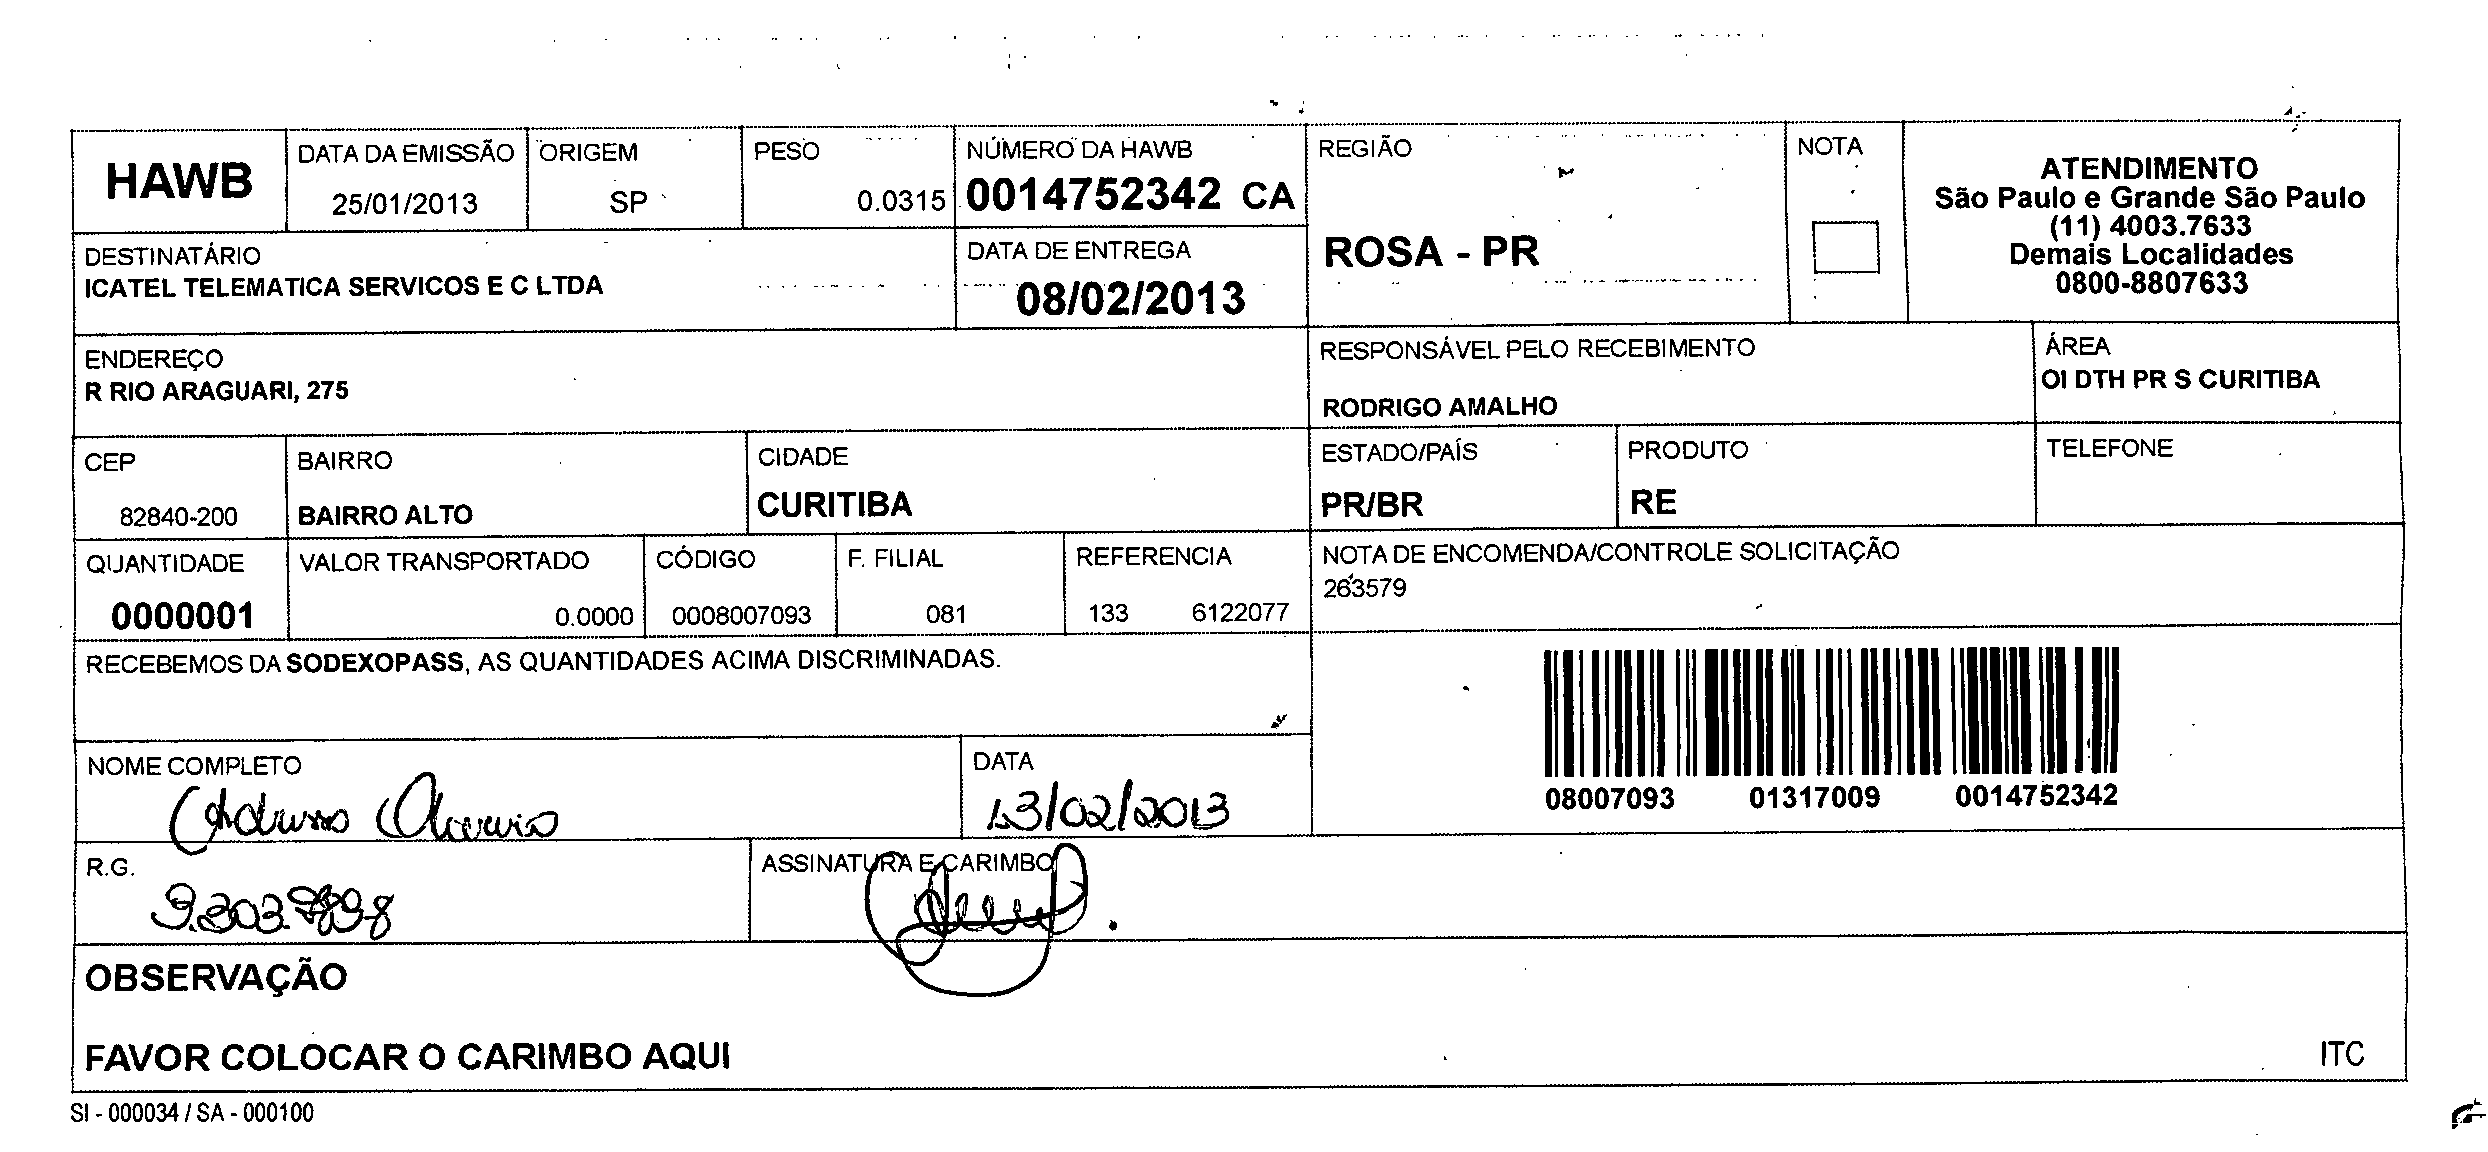 HAWB
DATA DA EMISSÃO
25/01/2013
ORIGEM
SP
PESO
0.0315
NÚMERO DA HAWB
0014752342 CA
REGIÃO
ROSA - PR
NOTA
ATENDIMENTO
São Paulo e Grande São Paulo
(11) 4003.7633
Demais Localidades
0800-8807633
DESTINATÁRIO
ICATEL TELEMATICA SERVICOS E C LTDA
DATA DE ENTREGA
08/02/2013
ENDEREÇO
R RIO ARAGUARI, 275
RESPONSÁVEL PELO RECEBIMENTO
RODRIGO AMALHO
ÁREA
OI DTH PR S CURITIBA
CEP
82840-200
BAIRRO
BAIRRO ALTO
CIDADE
CURITIBA
ESTADO/PAÍS
PR/BR
PRODUTO
RE
TELEFONE
QUANTIDADE
0000001
VALOR TRANSPORTADO
0.0000
CÓDIGO
0008007093
F. FILIAL
081
REFERENCIA
133 6122077
NOTA DE ENCOMENDA/CONTROLE SOLICITAÇÃO
263579
RECEBEMOS DA SODEXOPASS, AS QUANTIDADES ACIMA DISCRIMINADAS.
08007093 01317009 0014752342
NOME COMPLETO
DATA
13/02/2013
R.G.
ASSINATURA E CARIMBO
OBSERVAÇÃO
FAVOR COLOCAR O CARIMBO AQUI
ITC
SI - 000034 / SA - 000100